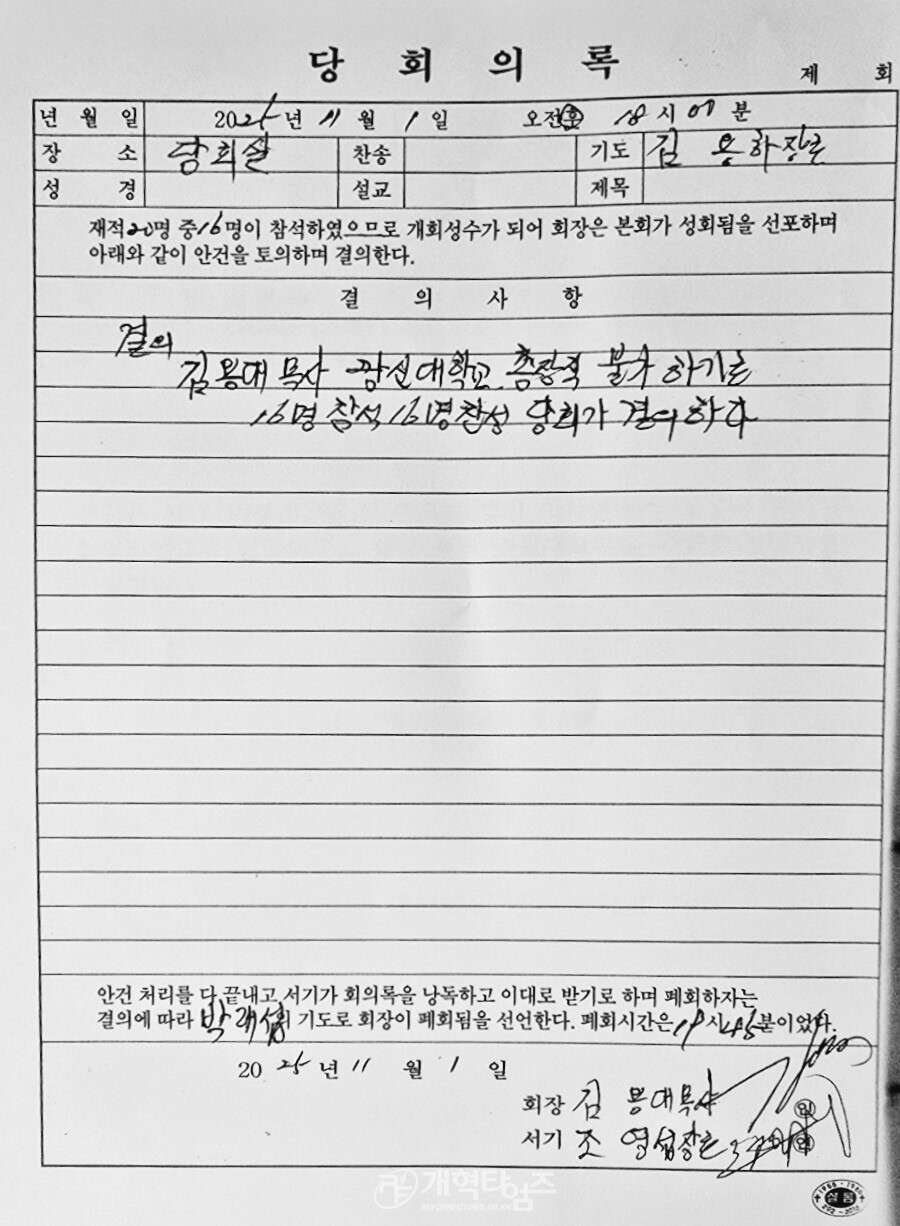 당 회 의 록
제 회
년 월 일 2025년 11월 1일 오전 후 18시 07분
장 소 당회실 찬송 기도 김용하장로
성 경 설교 제목
재적20명 중16명이 참석하였으므로 개회성수가 되어 회장은 본회가 성회됨을 선포하며
아래와 같이 안건을 토의하며 결의한다.
결 의 사 항
결의
김용대 목사 광신대학교 총장직 불가 하기로
16명 참석 16명찬성 당회가 결의하다
안건 처리를 다 끝내고 서기가 회의록을 낭독하고 이대로 받기로 하며 폐회하자는
결의에 따라 박래섭의 기도로 회장이 폐회됨을 선언한다. 폐회시간은 19시 45분이었다.
2025년 11월 1일
회장 김용대목사
서기 조영섭장로
개혁타임즈